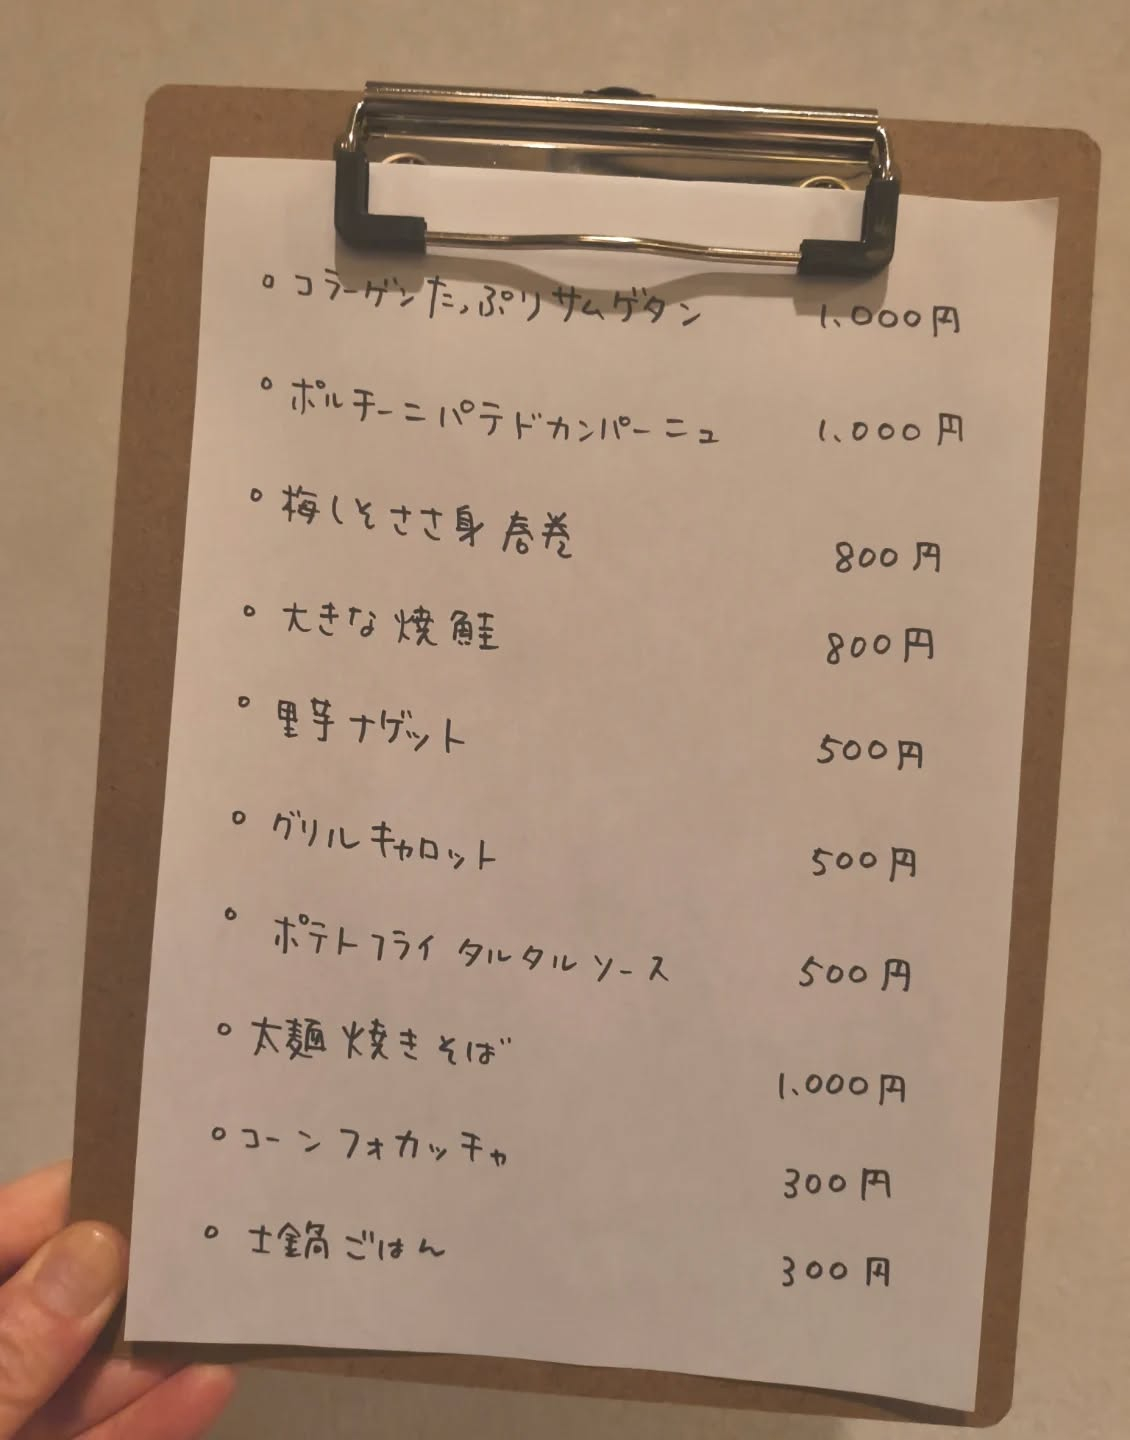 ○ コラーゲンたっぷりサムゲタン 1,000円
○ ポルチーニパテドカンパーニュ 1,000円
○ 梅しそささ身春巻 800円
○ 大きな焼鮭 800円
○ 里芋ナゲット 500円
○ グリルキャロット 500円
○ ポテトフライ タルタルソース 500円
○ 太麺焼きそば 1,000円
○ コーンフォカッチャ 300円
○ 土鍋ごはん 300円